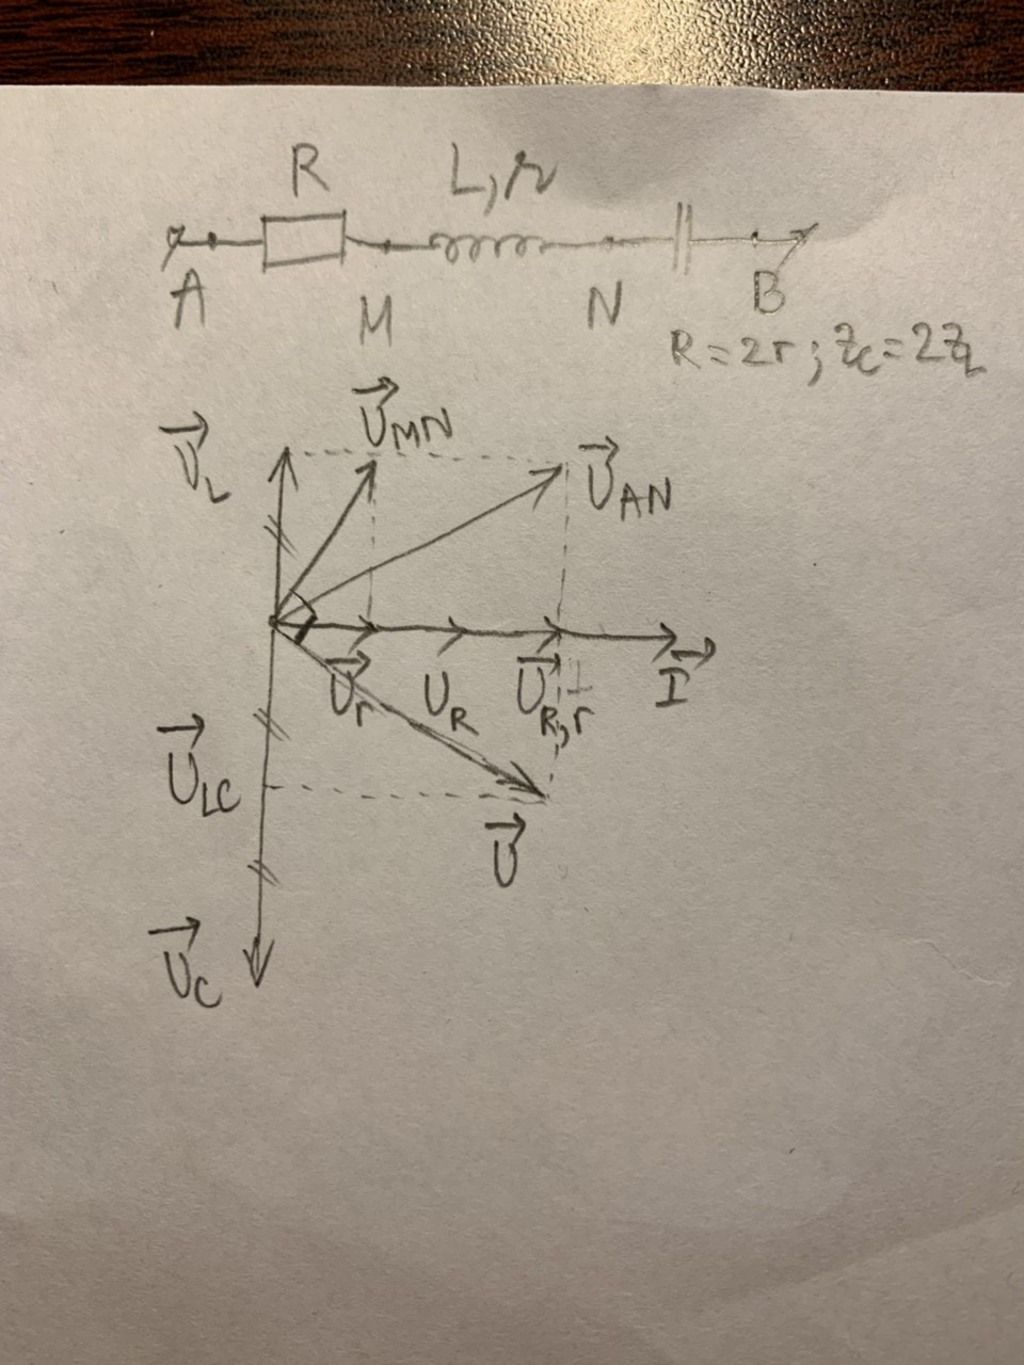 R L,r
A M N B
R=2r; Zc=2ZL
U⃗L U⃗MN U⃗AN
U⃗r UR U⃗R,r I⃗
U⃗LC
U⃗
U⃗C